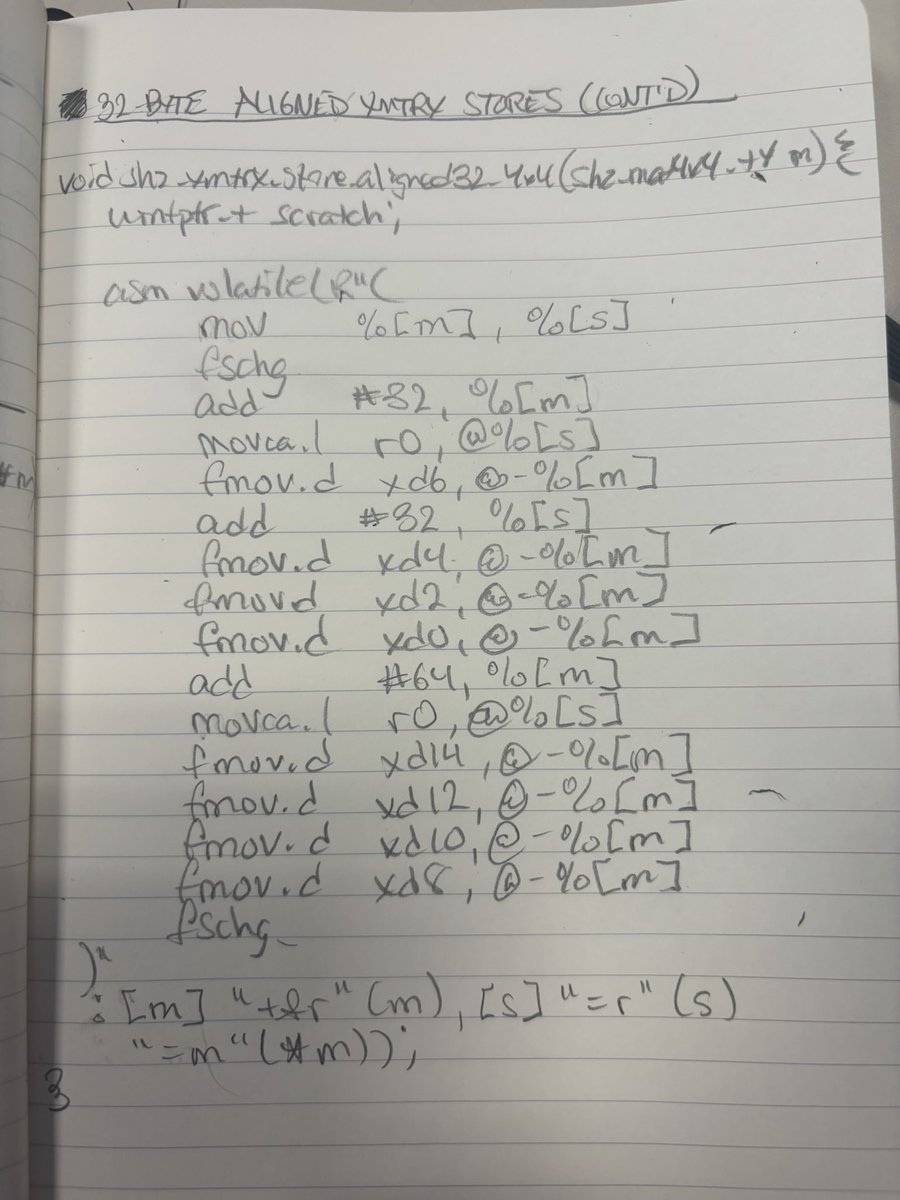 32-BYTE ALIGNED XMTRX STORES (CONT'D)
void shz_xmtrx_store_aligned32_4x4(shz_mat4x4_t* m) {
uintptr_t scratch;
asm volatile(R"(
mov %[m], %[s]
fschg
add #32, %[m]
movca.l r0, @%[s]
fmov.d xd6, @-%[m]
add #32, %[s]
fmov.d xd4, @-%[m]
fmov.d xd2, @-%[m]
fmov.d xd0, @-%[m]
add #64, %[m]
movca.l r0, @%[s]
fmov.d xd14, @-%[m]
fmov.d xd12, @-%[m]
fmov.d xd10, @-%[m]
fmov.d xd8, @-%[m]
fschg
)"
: [m] "+&r" (m), [s] "=r" (s)
"=m" (*m));
}